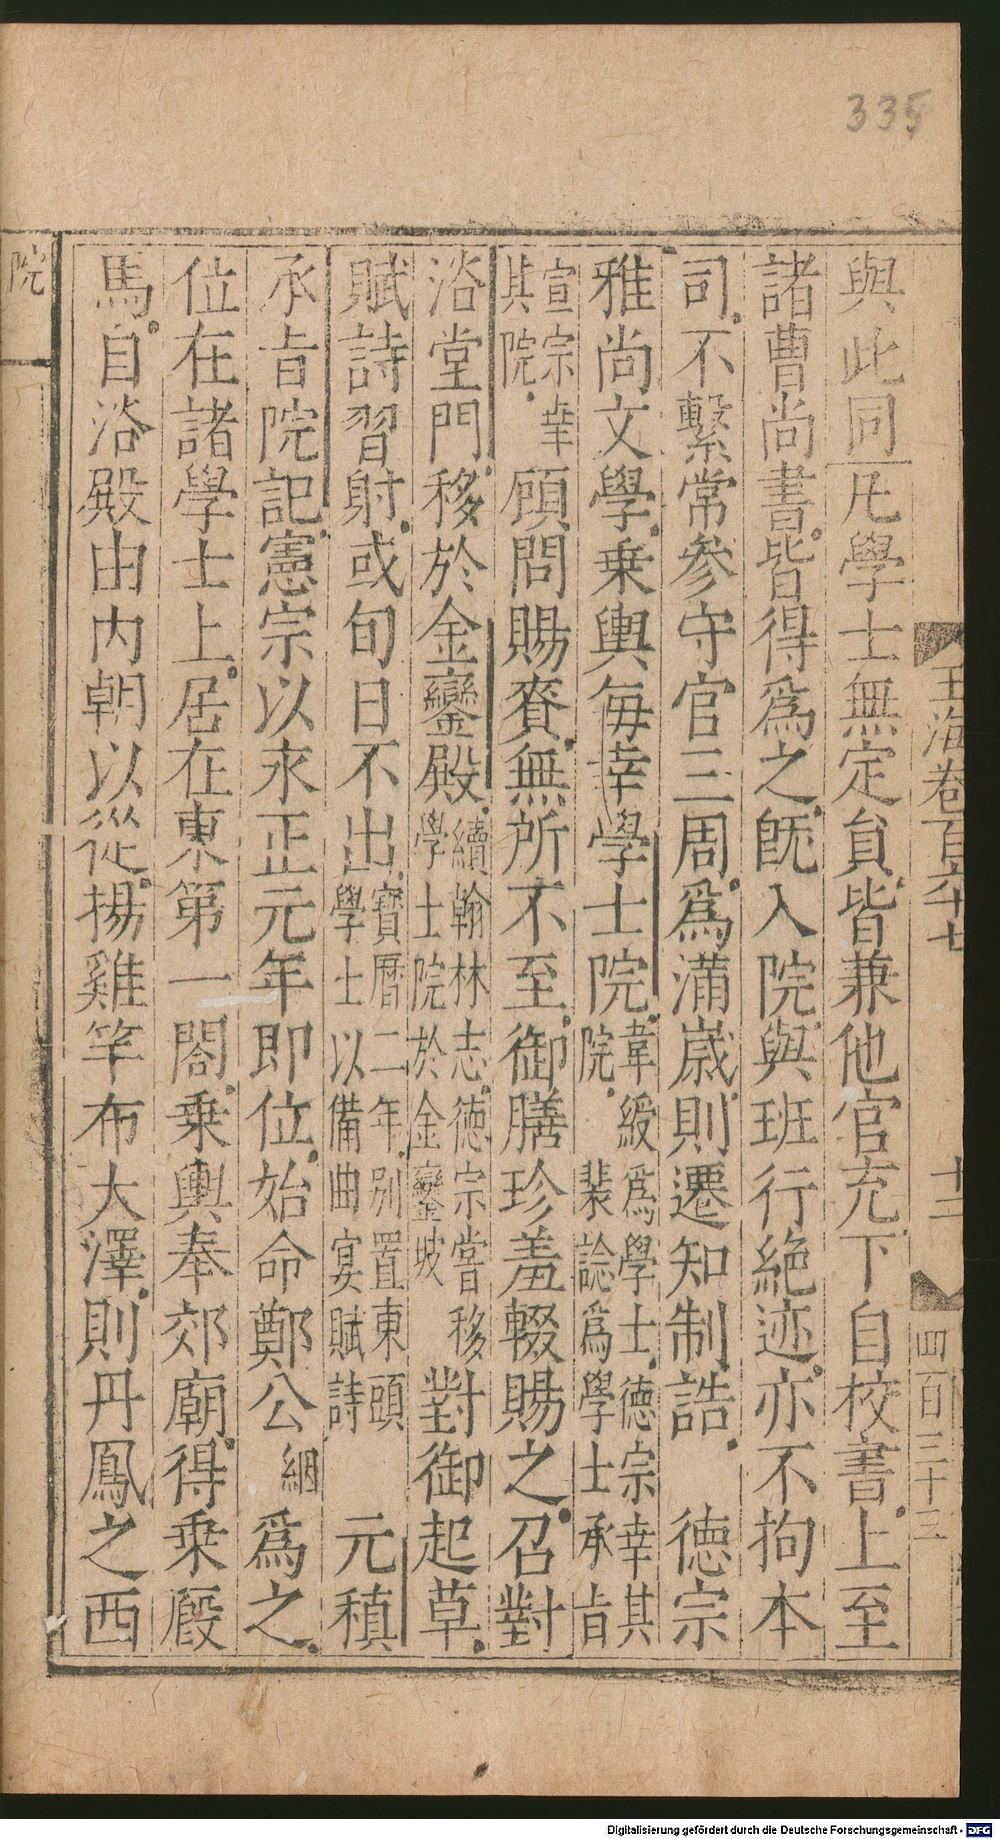 335
玉海卷百六十七
十二
四百三十三
與此同凡學士無定員皆兼他官充下自校書上至
諸曹尚書皆得爲之旣入院與班行絶迹亦不拘本
司不繫常參守官三周爲滿歲則遷知制誥 德宗
雅尚文學乗輿每幸學士院韋綬爲學士德宗幸其院裴諗爲學士承旨
宣宗幸其院顧問賜賚無所不至御膳珍羞輟賜之召對
浴堂門移於金鑾殿續翰林志德宗嘗移學士院於金鑾坡對御起草
賦詩習射或旬日不出寳曆二年别置東頭學士以備曲宴賦詩 元稹
承旨院記憲宗以永正元年即位始命鄭公絪爲之
位在諸學士上居在東第一閤乗輿奉郊廟得乗廐
馬自浴殿由内朝以從揚雞竿布大澤則丹鳳之西
院
Digitalisierung gefördert durch die Deutsche Forschungsgemeinschaft - DFG